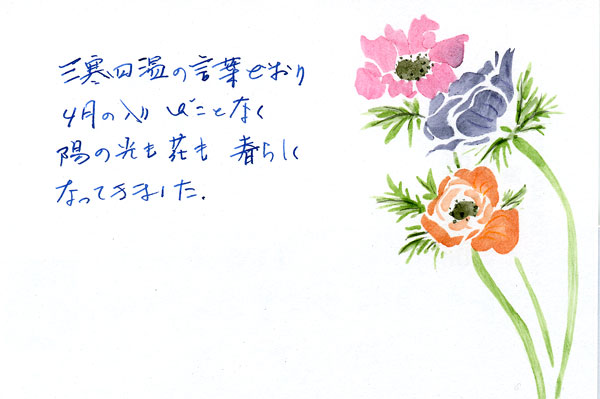 三寒四温の言葉どおり
4月の入り どことなく
陽の光も 花も 春らしく
なってきました.